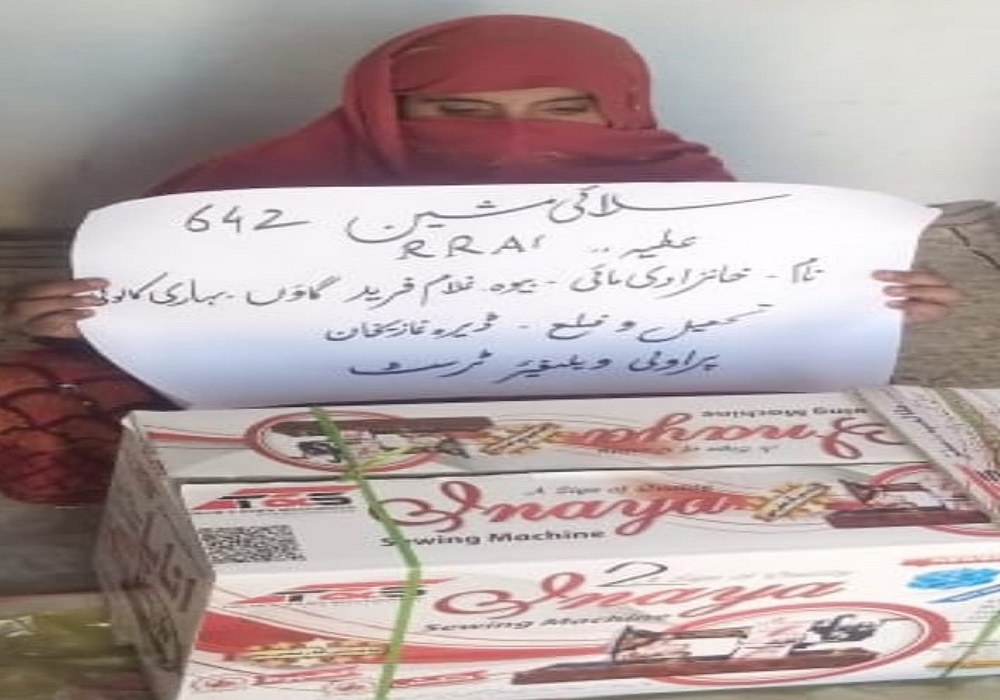 سلائی مشین 642
عطیہ .. RRAI
نام - خانزادی مائی - بیوہ غلام فرید گاؤں بہاری کالونی
تحصیل و ضلع - ڈیرہ غازیخان
پراولی ویلفیئر ٹرسٹ
Inaya
Sewing Machine
T&S
A Sign of Quality
Inaya
Sewing Machine
T&S
Inaya
Sewing Machine